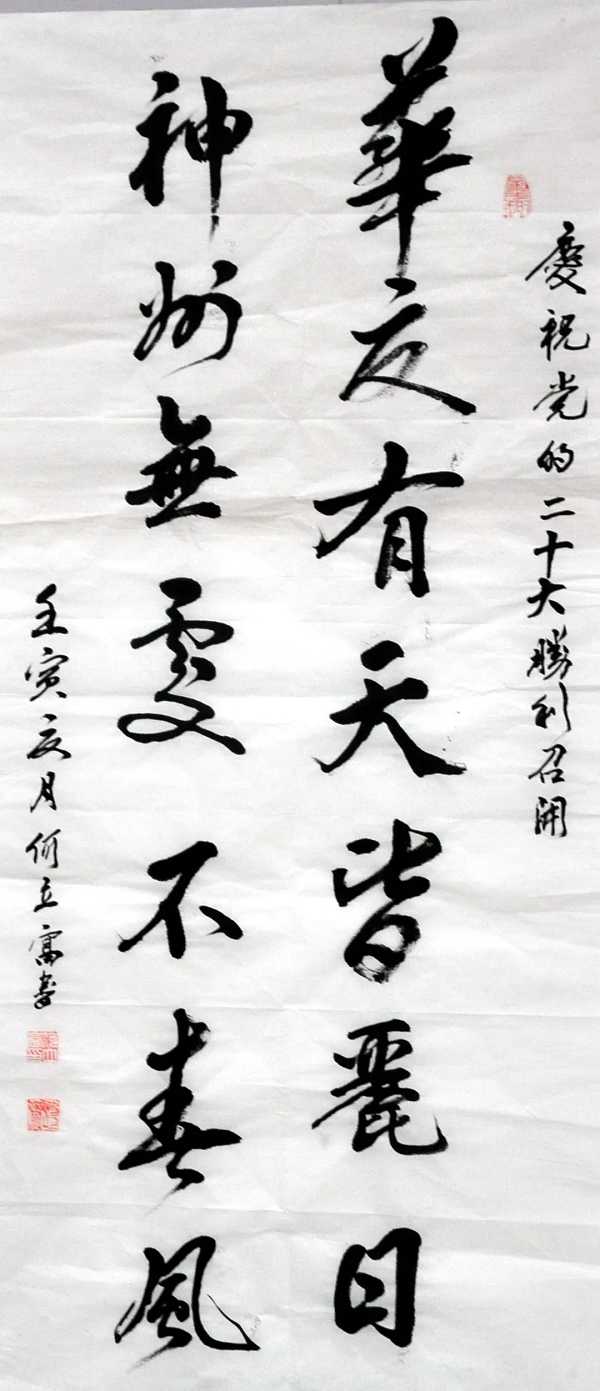 慶祝党的二十大勝利召開
華夏有天皆麗日
神州無處不春風
壬寅夏月何立富書